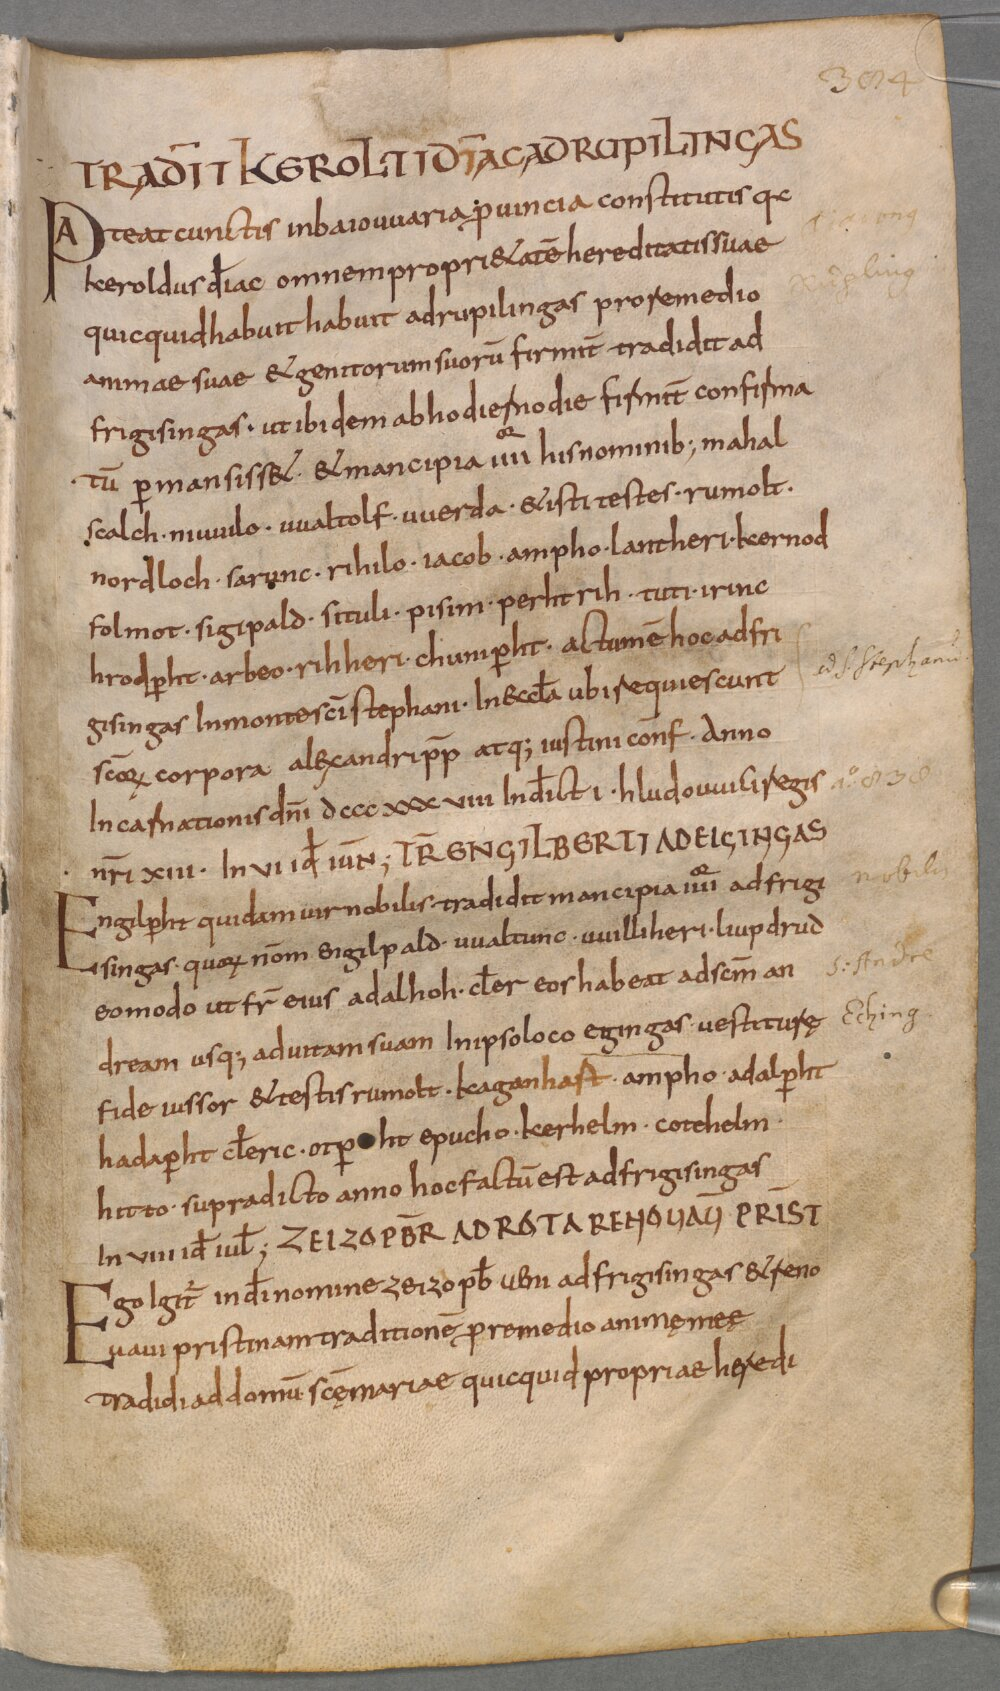 304
TRADIT̄ KEROLTI DĪAC AD RUPILINGAS
PAteat cunctis inbaiouuaria ꝓuincia constitutis qđ
keroldus điac omnem propri&atē hereditatis suae
quicquid habuit habuit ad rupilingas pro remedio
animae suae & genitorum suorū firmit̄ tradidit ad
frigisingas · ut ibidem ab hodierno die firmit̄ confirma
tū ꝑmansiss& · & mancipia iiii his nominib; mahal
scalch · niuuilo · uualtolf · uuerda · & isti testes · rumolt ·
nordloch · sarunc · rihilo · iacob · ampho · lantheri · kernod
folmot · sigipald · situli · pisim · perhtrih · tuti · irinc
hrodꝑht · arbeo · rihheri · chunipꝑht · actum ē hoc ad fri
gisingas In monte scī stephani · In eccła ubi requiescunt
ad S. Stephanū
scōꝝ corpora alexandri pp̄ atq; iustini conf̄ · Anno
Incarnationis dn̄i dccc xxx viii Indict i · hludouuici regis
aº 838
nr̄i xiii · In vi iđ iuN̄ ; TR̄ ENGILBERTI AD EIGINGAS
Engilꝑht quidam uir nobilis tradidit mancipia iiii ad frigi
nobilis
singas · quoꝝ nōm sigilpald · uualtunc · uuilliheri · liupdrud
eo modo ut fr̄ eius adalhoh · cłer eos habeat ad scm̄ an
S: Andre
dream usq; ad uitam suam In ipso loco eigingas · uestiturę
Eching
fide iussor & testis rumolt · kaganhast · ampho · adalꝑht
hadaꝑht cłeric · otꝑht epucho · kerhelm · cotehelm ·
hitto · supradicto anno hoc factū est ad frigisingas
In viii iđ iuł ; ZEIZO PB̄R AD ROTA RENOUAU̅ PRIST̄
Ego Igit̄ in dī nomine zeizo pb̄ ueni ad frigisingas & reno
uaui pristinam traditionē ꝓ remedio animę meę
tradidi ad domū scę mariae quicquid propriae heredi